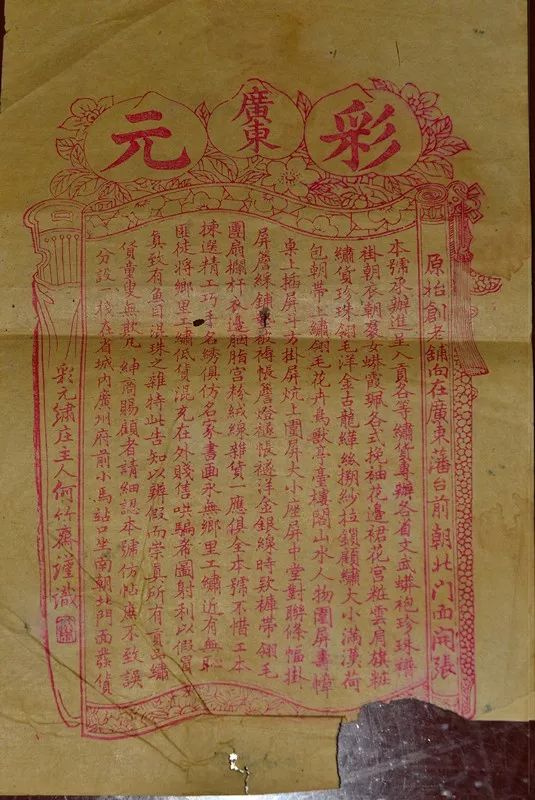 廣東
彩元
原始創老舖向在廣東藩台前朝北门面開張
本號承辦進呈入貢各等繡貨專辦各省文武蟒袍珍珠補
褂朝衣朝裙女蟒霞珮各式挽袖花邊裙花宮粧雲肩旗粧
繡貨珍珠翎毛洋金古龍緙絲搠紗拉鎖顧繡大小滿漢荷
包朝帶上繡翎毛花卉鳥獸亭臺樓閣山水人物圍屏畫幃
桌上插屏斗方掛屏炕上圍屏大小座屏中堂對聯條幅掛
屏簷綵鋪墊椅帳簷燈褪帳褪洋金銀線時款褲帶翎毛
團扇欄杆衣邊胭脂宮粉絨線雜貨一應俱全本號不惜工本
揀選精工巧手名綉俱仿名家書画永無鄉里工繡近有無恥
匪徒將鄉里工繡低貨混充在外賤售哄騙希圖射利以假冒
真致有魚目混珠之雜特此告知以辨假而崇真所有貢品繡
貨童叟無欺凢紳商賜顧者請細認本號仿帖庶不致誤
分設一棧在省城内廣州府前小馬站口坐南朝北門面發貨
彩元繡庄主人何竹齋謹識